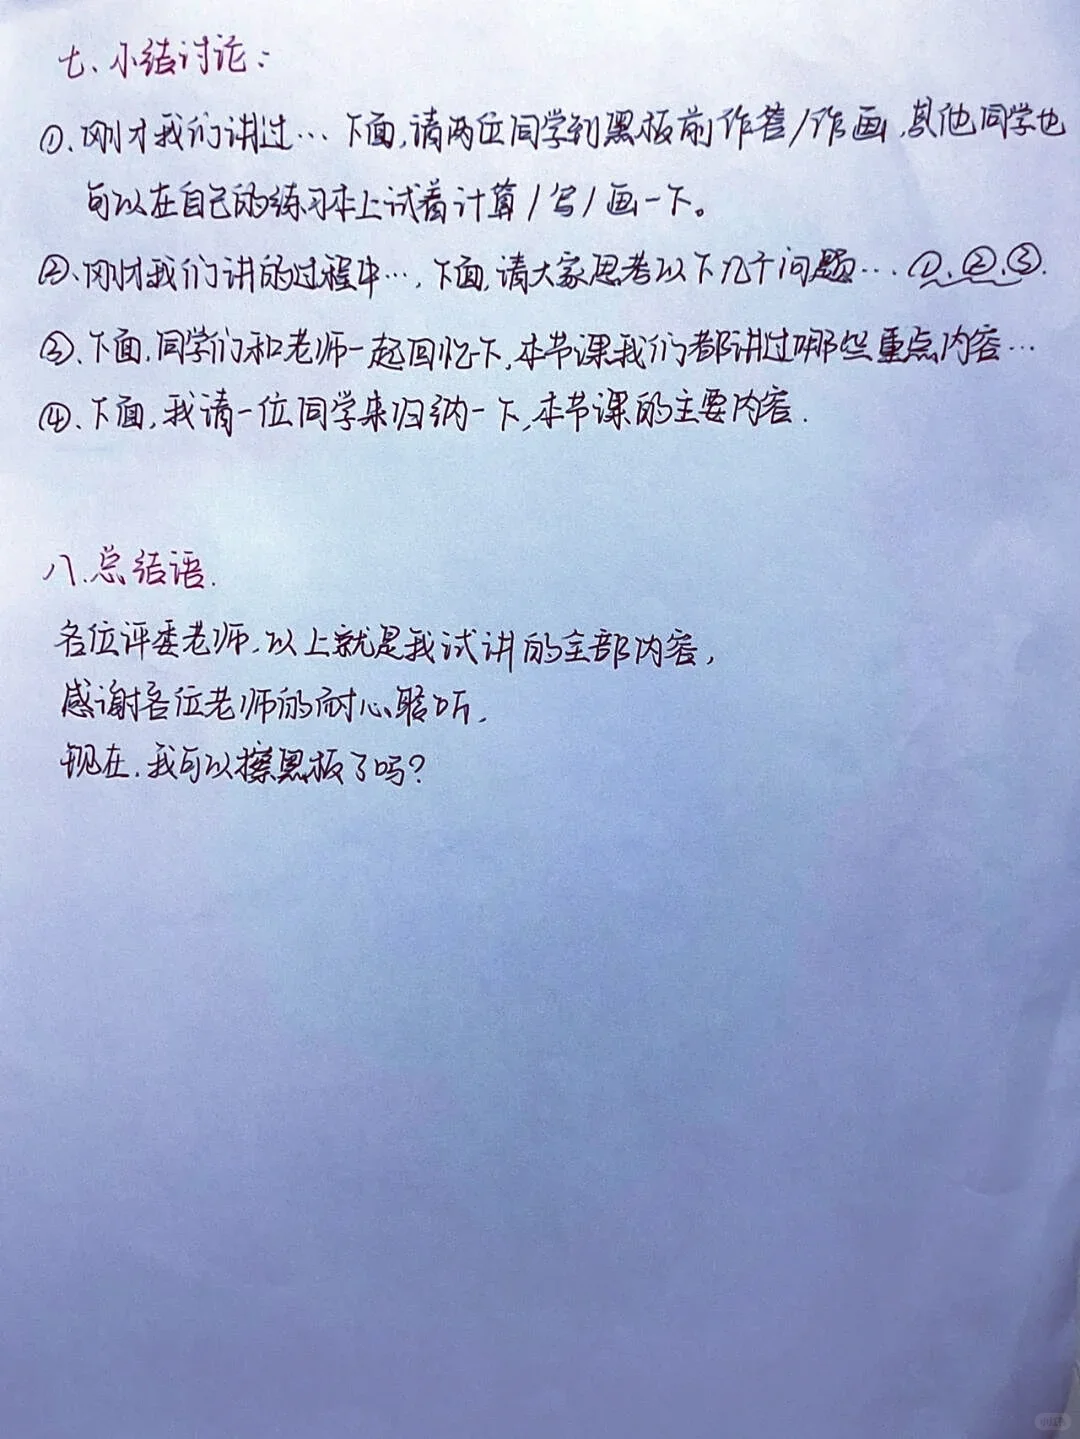 七、小结讨论：
①、刚才我们讲过… 下面,请两位同学到黑板前作答/作画,其他同学也
可以在自己的练习本上试着计算/写/画一下。
②、刚才我们讲的过程中…,下面,请大家思考以下几个问题… ①、②、③.
③、下面,同学们和老师一起回忆下,本节课我们都讲过哪些重点内容…
④、下面,我请一位同学来归纳一下,本节课的主要内容.
八.总结语.
各位评委老师,以上就是我试讲的全部内容,
感谢各位老师的耐心聆听,
现在,我可以擦黑板了吗?
小红书